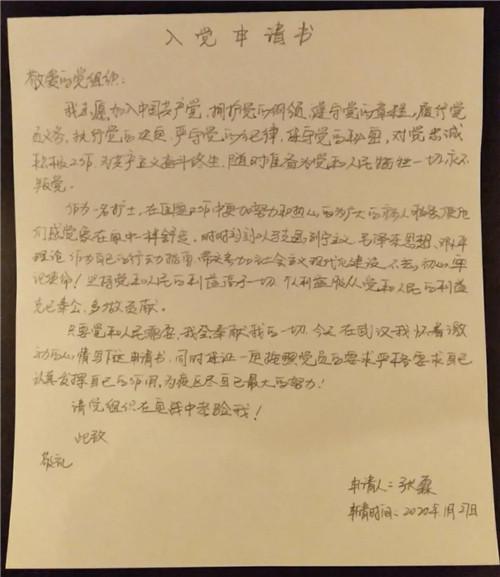 入党申请书
敬爱的党组织:
我志愿加入中国共产党,拥护党的纲领,遵守党的章程,履行党
员义务,执行党的决定,严守党的纪律,保守党的秘密,对党忠诚
积极工作,为共产主义奋斗终生,随时准备为党和人民牺牲一切,永不
叛党。
作为一名护士,在医护工作中更加努力和热心的为广大的病人服务使他
们感觉像在家中一样舒适,时时刻刻以马克思列宁主义、毛泽东思想、邓小平
理论作为自己的行动指南,带头参加社会主义现代化建设,不忘初心,牢
记使命!坚持党和人民的利益高于一切,个人利益服从党和人民的利益
克己奉公,多做贡献。
只要党和人民需要,我会奉献我的一切。今天在武汉我怀着激
动的心情写下这申请书,同时保证一定按照党员的要求严格要求自己
认真发挥自己的作用,为疫区尽自己最大的努力!
请党组织在实践中考验我!
此致
敬礼
申请人:张磊
申请时间:2020年1月27日